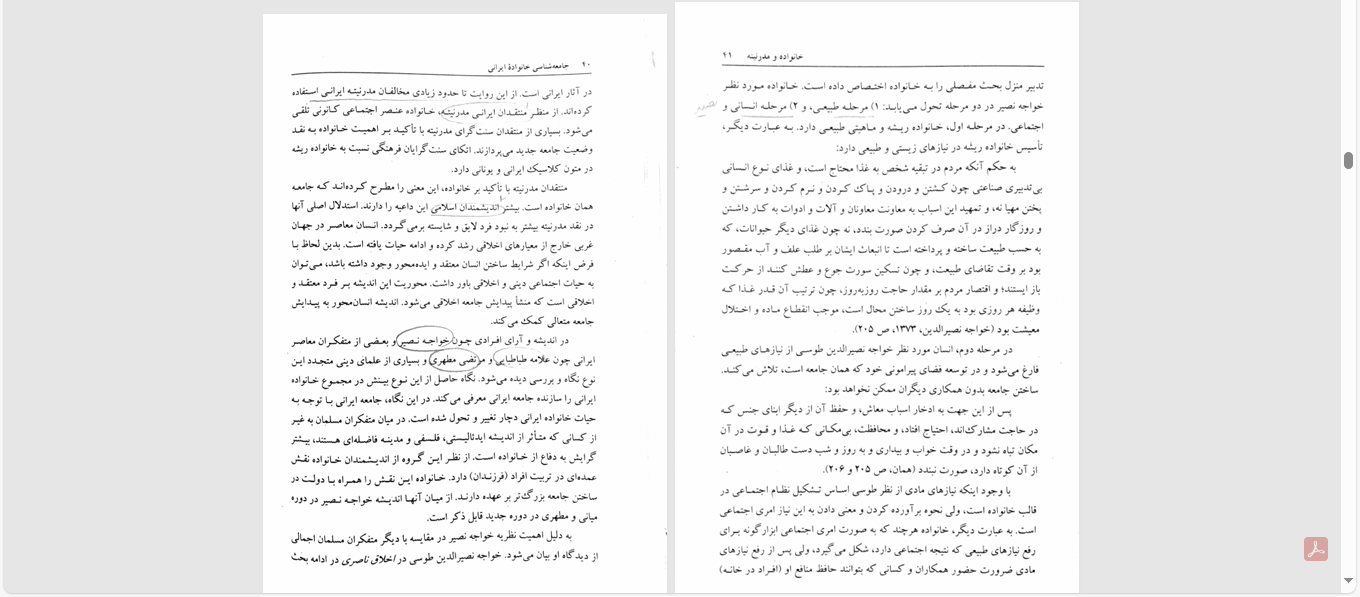 ۴۰ جامعه‌شناسی خانوادهٔ ایرانی
در آثار ایرانی است. از این روایت تا حدود زیادی مخالفان مدرنیته ایرانی استفاده
کرده‌اند. از منظر منتقدان ایرانی مدرنیته، خانواده عنصر اجتماعی کانونی تلقی
می‌شود. بسیاری از منتقدان سنت‌گرای مدرنیته با تأکید بر اهمیت خانواده به نقد
وضعیت جامعه جدید می‌پردازند. اتکای سنت‌گرایان فرهنگی نسبت به خانواده ریشه
در متون کلاسیک ایرانی و یونانی دارد.
منتقدان مدرنیته با تأکید بر خانواده، این معنی را مطرح کرده‌اند که جامعه
همان خانواده است. بیشتر اندیشمندان اسلامی این داعیه را دارند. استدلال اصلی آنها
در نقد مدرنیته بیشتر به نبود فرد لایق و شایسته برمی‌گردد. انسان معاصر در جهان
غربی خارج از معیارهای اخلاقی رشد کرده و ادامه حیات یافته است. بدین لحاظ با
فرض اینکه اگر شرایط ساختن انسان معتقد و ایده‌محور وجود داشته باشد، می‌توان
به حیات اجتماعی دینی و اخلاقی باور داشت. محوریت این اندیشه بر فرد معتقد و
اخلاقی است که منشأ پیدایش جامعه اخلاقی می‌شود. اندیشه انسان‌محور به پیدایش
جامعه متعالی کمک می‌کند.
در اندیشه و آرای افرادی چون خواجه نصیر و بعضی از متفکران معاصر
ایرانی چون علامه طباطبایی و مرتضی مطهری و بسیاری از علمای دینی متجدد این
نوع نگاه و بررسی دیده می‌شود. نگاه حاصل از این نوع بینش در مجموع خانواده
ایرانی را سازنده جامعه ایرانی معرفی می‌کند. در این نگاه، جامعه ایرانی با توجه به
حیات خانواده ایرانی دچار تغییر و تحول شده است. در میان متفکران مسلمان به غیر
از کسانی که متأثر از اندیشه ایدئالیستی، فلسفی و مدینه فاضله‌ای هستند، بیشتر
گرایش به دفاع از خانواده است. از نظر این گروه از اندیشمندان خانواده نقش
عمده‌ای در تربیت افراد (فرزندان) دارد. خانواده این نقش را همراه با دولت در
ساختن جامعه بزرگ‌تر بر عهده دارند. از میان آنها اندیشه خواجه نصیر در دوره
میانی و مطهری در دوره جدید قابل ذکر است.
به دلیل اهمیت نظریه خواجه نصیر در مقایسه با دیگر متفکران مسلمان اجمالی
از دیدگاه او بیان می‌شود. خواجه نصیرالدین طوسی در اخلاق ناصری در ادامه بحث
خانواده و مدرنیته ۴۱
تدبیر منزل بحث مفصلی را به خانواده اختصاص داده است. خانواده مورد نظر
خواجه نصیر در دو مرحله تحول می‌یابد: ۱) مرحله طبیعی، و ۲) مرحله انسانی و
اجتماعی. در مرحله اول، خانواده ریشه و ماهیتی طبیعی دارد. به عبارت دیگر،
تأسیس خانواده ریشه در نیازهای زیستی و طبیعی دارد:
به حکم آنکه مردم در تبقیه شخص به غذا محتاج است، و غذای نوع انسانی
بی‌تدبیری صناعتی چون کشتن و درودن و پاک کردن و نرم کردن و سرشتن و
پختن مهیا نه، و تمهید این اسباب به معاونت معاونان و آلات و ادوات به کار داشتن
و روزگار دراز در آن صرف کردن صورت بندد، نه چون غذای دیگر حیوانات، که
به حسب طبیعت ساخته و پرداخته است تا انبعاث ایشان بر طلب علف و آب مقصور
بود بر وقت تقاضای طبیعت، و چون تسکین سورت جوع و عطش کنند از حرکت
باز ایستند؛ و اقتصار مردم بر مقدار حاجت روزبه‌روز، چون ترتیب آن قدر غذا که
وظیفه هر روزی بود به یک روز ساختن محال است، موجب انقطاع ماده و اختلال
معیشت بود (خواجه نصیرالدین، ۱۳۷۳، ص ۲۰۵).
در مرحله دوم، انسان مورد نظر خواجه نصیرالدین طوسی از نیازهای طبیعی
فارغ می‌شود و در توسعه فضای پیرامونی خود که همان جامعه است، تلاش می‌کند.
ساختن جامعه بدون همکاری دیگران ممکن نخواهد بود:
پس از این جهت به ادخار اسباب معاش، و حفظ آن از دیگر ابنای جنس که
در حاجت مشارک‌اند، احتیاج افتاد، و محافظت، بی‌مکانی که غذا و قوت در آن
مکان تباه نشود و در وقت خواب و بیداری و به روز و شب دست طالبان و غاصبان
از آن کوتاه دارد، صورت نبندد (همان، ص ۲۰۵ و ۲۰۶).
با وجود اینکه نیازهای مادی از نظر طوسی اساس تشکیل نظام اجتماعی در
قالب خانواده است، ولی نحوه برآورده کردن و معنی دادن به این نیاز امری اجتماعی
است. به عبارت دیگر، خانواده هرچند که به صورت امری اجتماعی ابزارگونه برای
رفع نیازهای طبیعی که نتیجه اجتماعی دارد، شکل می‌گیرد، ولی پس از رفع نیازهای
مادی ضرورت حضور همکاران و کسانی که بتوانند حافظ منافع او (افراد در خانه)